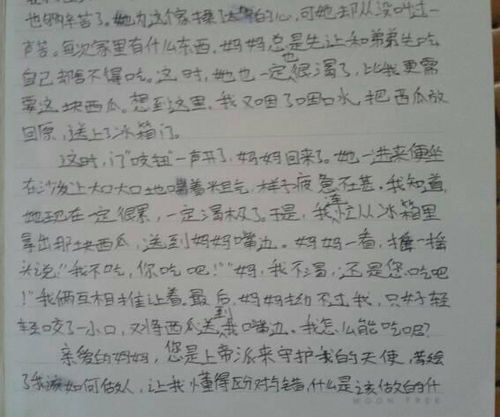 也够辛苦了。她为这个家操了太多的心,可她却从没叫过一
声苦。每次家里有什么东西,妈妈总是先让和弟弟先吃
自己却舍不得吃。这时,她也一定也很渴了,比我更需
要这块西瓜。想到这里,我又咽了咽口水,把西瓜放
回原,送上了冰箱门。
这时,门“吱钮”一声开了,妈妈回来了。她一进来便坐
在沙发上大口大口地喘着粗气,样子疲惫不甚。我知道,
她现在一定很累,一定渴极了。于是,我连忙从冰箱里
拿出那块西瓜,送到妈妈嘴边。妈妈一看,摇一摇
头说:“我不吃,你吃吧!”“妈,我不渴,还是您吃吧
!”我俩互相推让着,最后,妈妈拗不过我,只好轻
轻咬了一小口,又将西瓜送到我嘴边。我怎么能吃呢?
亲爱的妈妈,您是上帝派来守护我的天使,
了我该如何做人,让我懂得区分对与错,什么是该做的什
MOON TREE